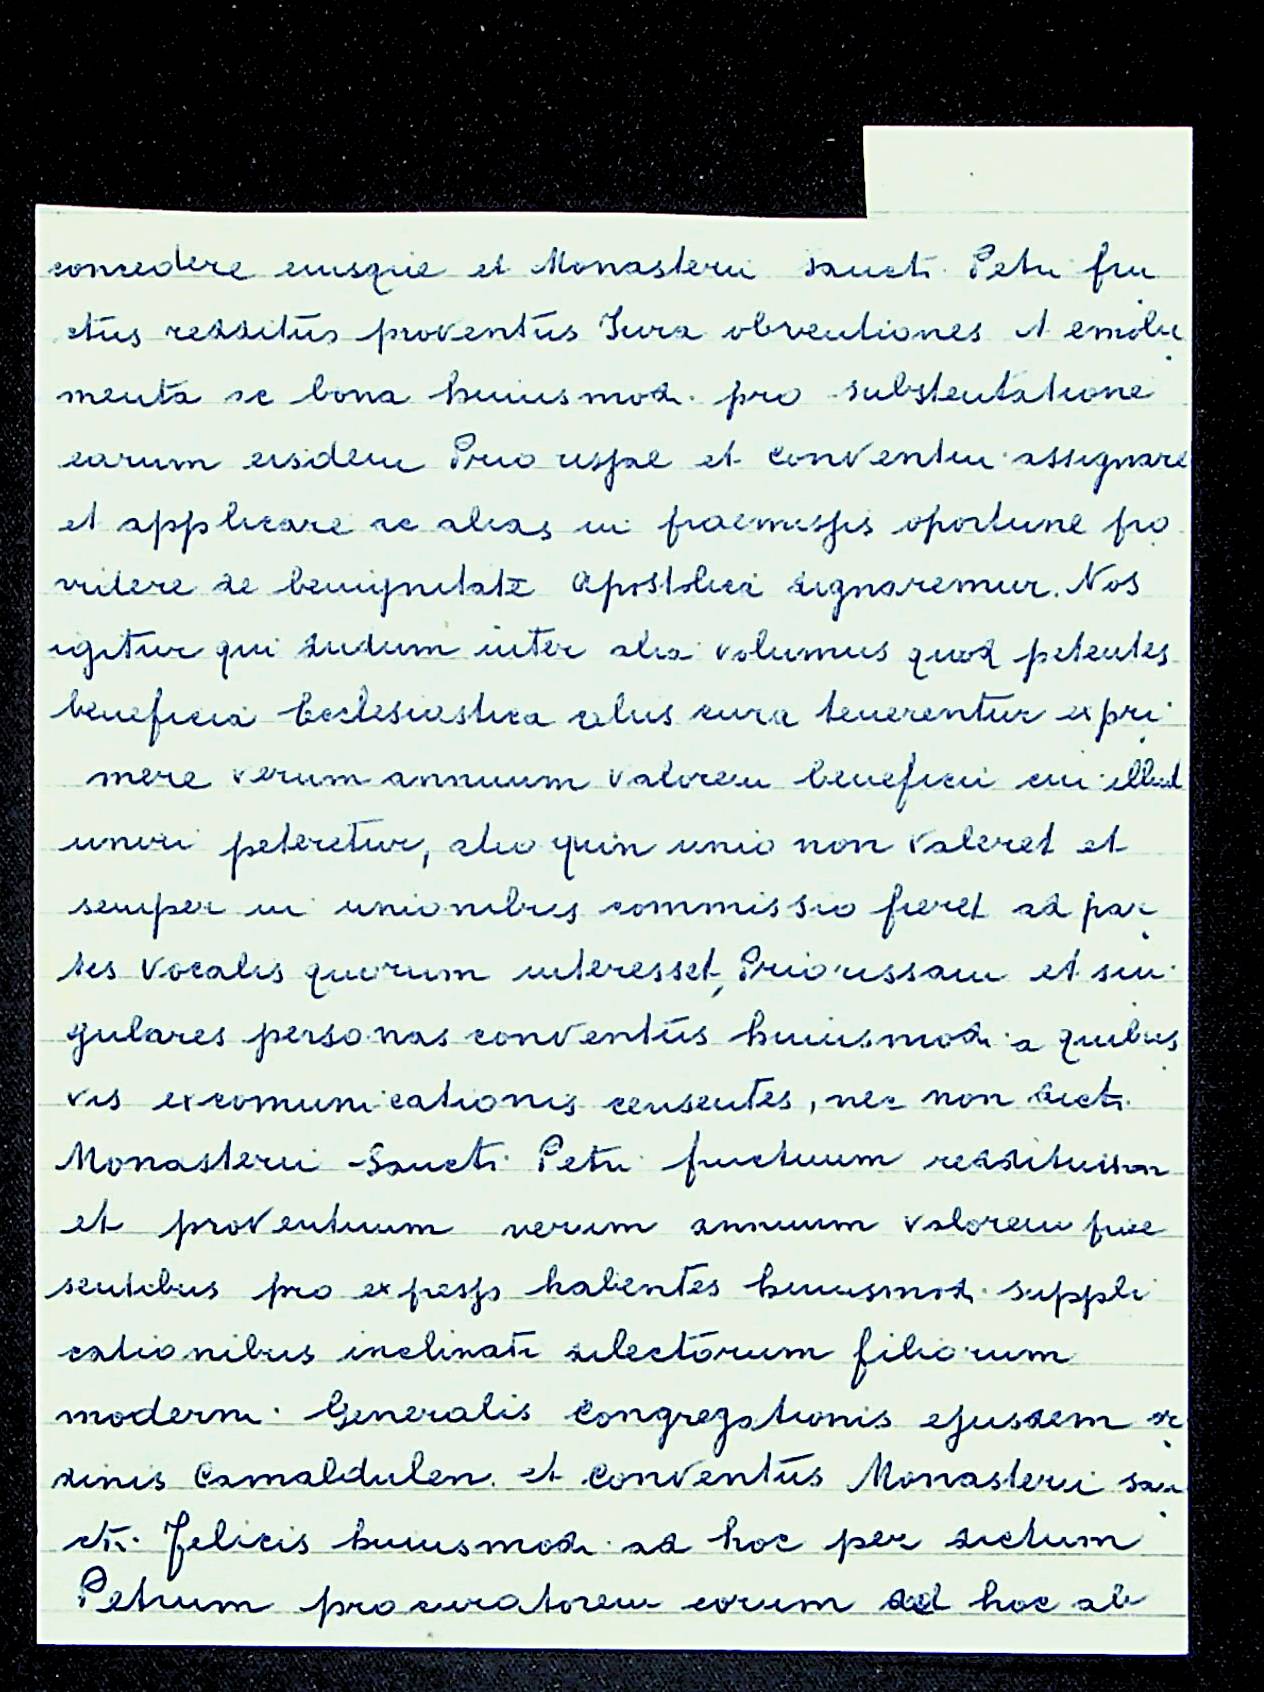 concedere eiusque et Monasterii Sancti Petri fru
ctus redditus proventus Jura obventiones et emolu
menta ac bona huiusmodi pro substentatione
earum eisdem Priorissae et conventui assignare
et applicare ac alias in praemissis oportune pro
videre de benignitate Apostolica dignaremur. Nos
igitur qui dudum inter alia volumus quod petentes
beneficia Ecclesiastica aliis cura tenerentur expri
mere verum annuum valorem beneficii cui illud
uniri peteretur, alioquin unio non valeret et
semper in unionibus commissio fieret ad par
tes vocalis quorum interesset, Priorissam et sin
gulares personas conventus huiusmodi a quibus
vis excomunicationis censentes, nec non dicti
Monasterii Sancti Petri fructuum reddituum
et proventuum verum annuum valorem prae
sentibus pro expressis habentes huiusmodi suppli
cationibus inclinati dilectorum filiorum
moderni Generalis Congregationis ejusdem or
dinis Camaldulen. et Conventus Monasterii san
cti Felicis huiusmodi ad hoc per dictum
Petrum procuratorem eorum ad hoc ab